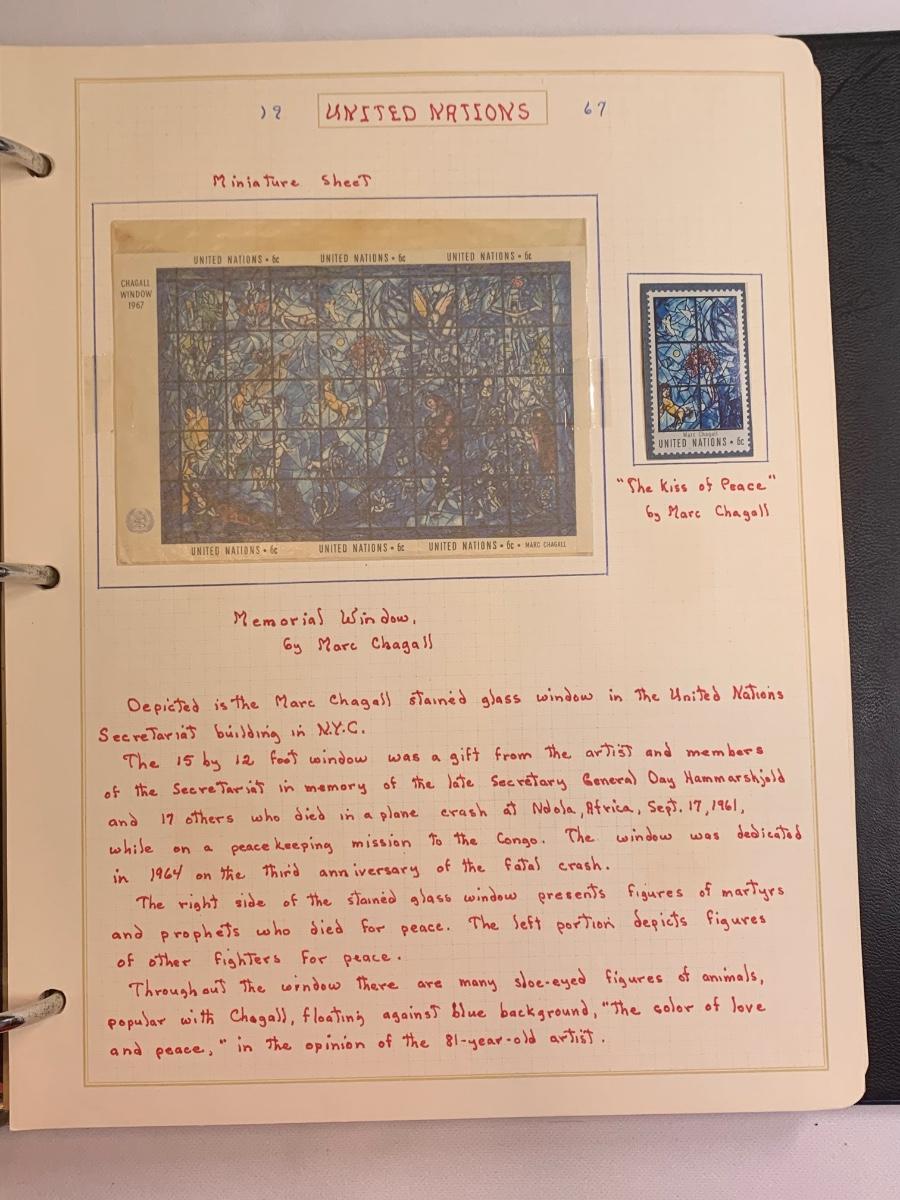 19 UNITED NATIONS 67
Miniature Sheet
UNITED NATIONS • 6c UNITED NATIONS • 6c UNITED NATIONS • 6c
CHAGALL
WINDOW
1967
UNITED NATIONS • 6c UNITED NATIONS • 6c UNITED NATIONS • 6c • MARC CHAGALL
Marc Chagall
UNITED NATIONS • 6c
"The Kiss of Peace"
by Marc Chagall
Memorial Window,
by Marc Chagall
Depicted is the Marc Chagall stained glass window in the United Nations
Secretariat building in N.Y.C.
The 15 by 12 foot window was a gift from the artist and members
of the Secretariat in memory of the late Secretary General Day Hammarshjold
and 17 others who died in a plane crash at Ndola, Africa, Sept. 17, 1961,
while on a peace keeping mission to the Congo. The window was dedicated
in 1964 on the third anniversary of the fatal crash.
The right side of the stained glass window presents figures of martyrs
and prophets who died for peace. The left portion depicts figures
of other fighters for peace.
Throughout the window there are many sloe-eyed figures of animals,
popular with Chagall, floating against blue background, "The color of love
and peace," in the opinion of the 81-year-old artist.